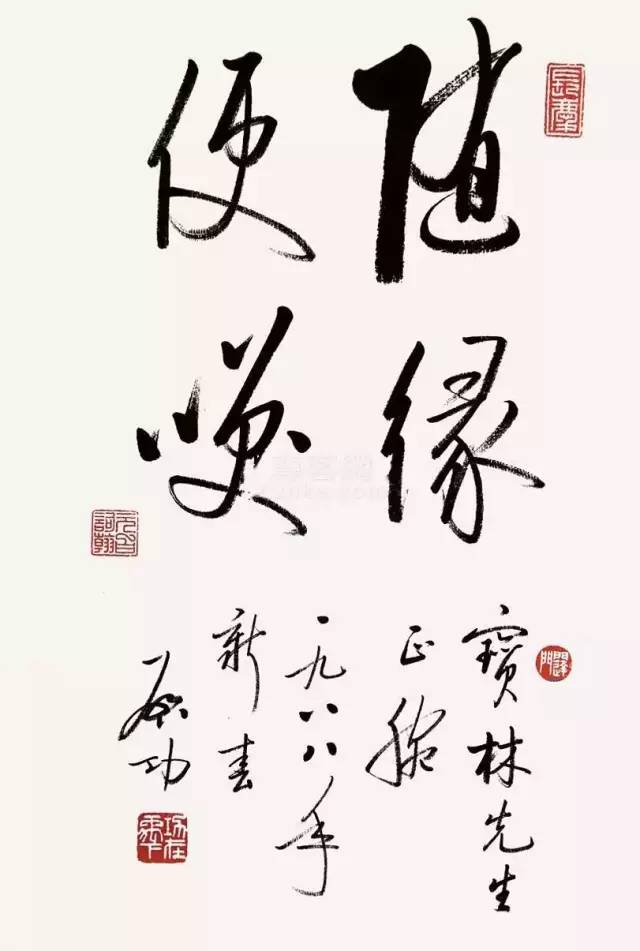 随缘
便咲
寶林先生
正腕
一九八八年
新春
启功